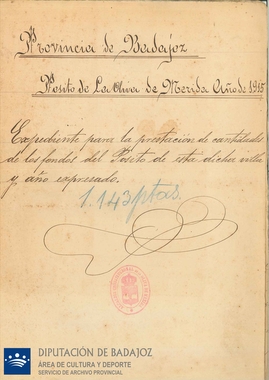 Provincia de Badajoz
Posito de La Oliva de Merida Año de 1915
Expediente para la prestación de cantidades
de los fondos del Posito de esta dicha villa
y año expresado.
1.143 ptas.
DIPUTACIÓN DE BADAJOZ
ÁREA DE CULTURA Y DEPORTE
SERVICIO DE ARCHIVO PROVINCIAL